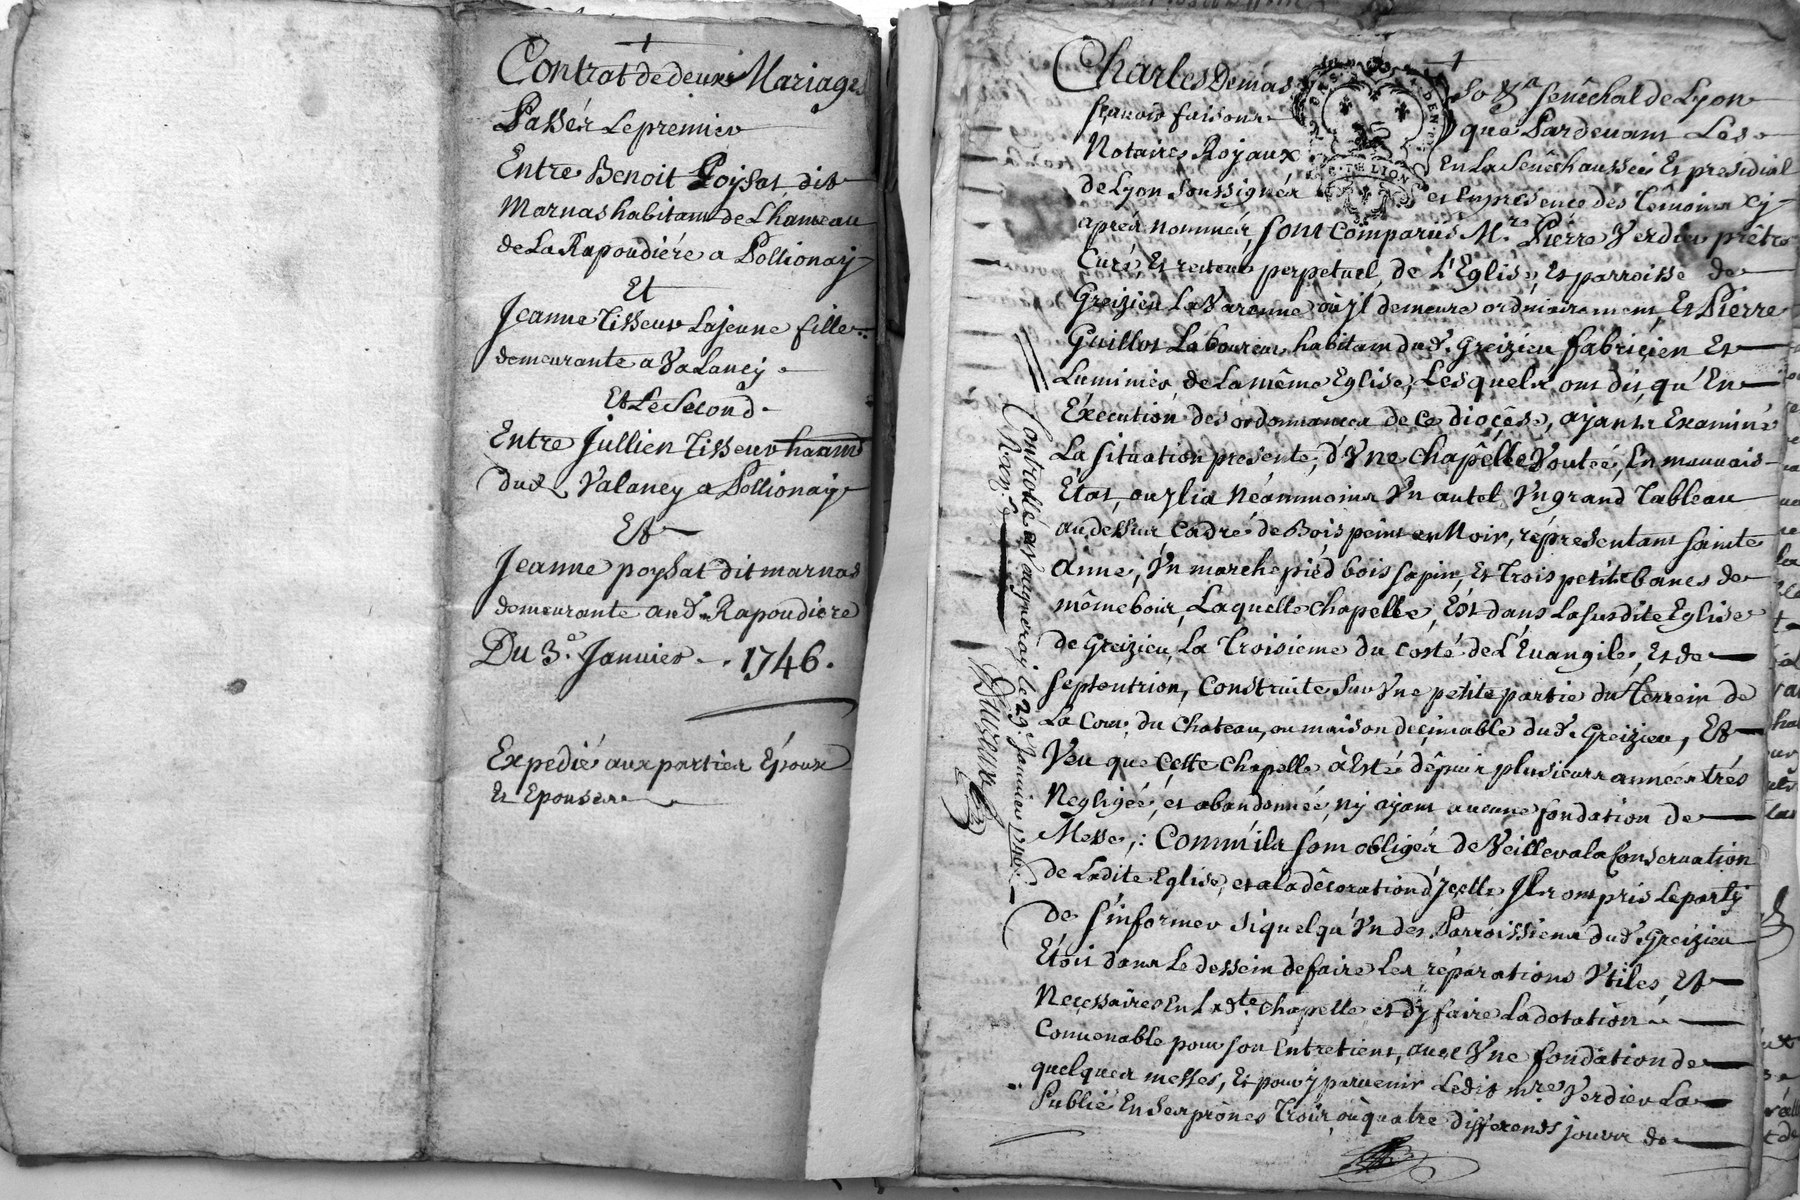 Contrat de deux Mariages
Passés Le premier
Entre Benoit Poysat dit
Marnas habitant de L'hameau
de La Rapoudiére a Pollionay
Et
Jeanne Tisseur Lajeune fille
demeurante a Valancy
Et Le Second
Entre Jullien Tisseur
dud. Valancy a Pollionay
Et
Jeanne poysat dit marnas
demeurante aud. Rapoudiere
Du 3.e Janvier 1746.
Expedié aux parties Époux
Et Epouses
Charles Demas So Sénéchal de Lyon
sçavoir faisons que Pardevant Les
Notaires Royaux En La Sénéchaussée Et presidial
de Lyon Soussignés et En présence des Témoins cy
aprés nommés, sont comparus M.re Pierre Verdier prêtre
Curé, Et recteur perpetuel, de L'Eglise, Et parroisse de
Greizieu La Varenne où Jl demeure ordinairement, Et Pierre
Guillot Laboureur habitant dud. Greizieu fabricien Et
Luminier de La même Eglise, Lesquels, ont dit, qu'En
Éxécution des ordonnances de ce diocése, ayants Examiné
La Situation presente, d'Vne Chapelle Voutée, En mauvais
Etat, ou Jl i a Néanmoins Vn autel, Vn grand Tableau
au dessus, Cadré de Bois peint en Noir, réprésentant Sainte
Anne, Vn marchepied bois sapin, Et Trois petits bancs de
même bois, Laquelle Chapelle, Est dans La Susdite Eglise
de Greizieu, La Troisieme du Costé de L'Evangile, Et de
Septentrion, Construite Sur Vne petite partie du Terrein de
La Cour du Chateau, ou maison decimable dud. Greizieu, Et
Veu que Cette Chapelle à Esté dépuis plusieurs années trés
Negligée, et abandonnée, ny ayant aucune fondation de
Messe, : Comm'ils sont obligés de Veiller a la Conservation
de Ladite Eglise, et a la décoration d'Jcelle Jls ont pris Le party
de s'informer si quelqu'Vn des Parroissiens dud. Greizieu
Etoit dans Le dessein de faire Les réparations Vtiles, Et
Necessaires En Lad.te Chapelle et d'y faire La dotation
Convenable pour son Entretient, avec Vne fondation de
quelques messes, Et pour y parvenir Ledit M.re Verdier La
Publié En Ses prônes Trois, ou quatre différents jours de
Controllé a Vaugneray le 29. Janvier